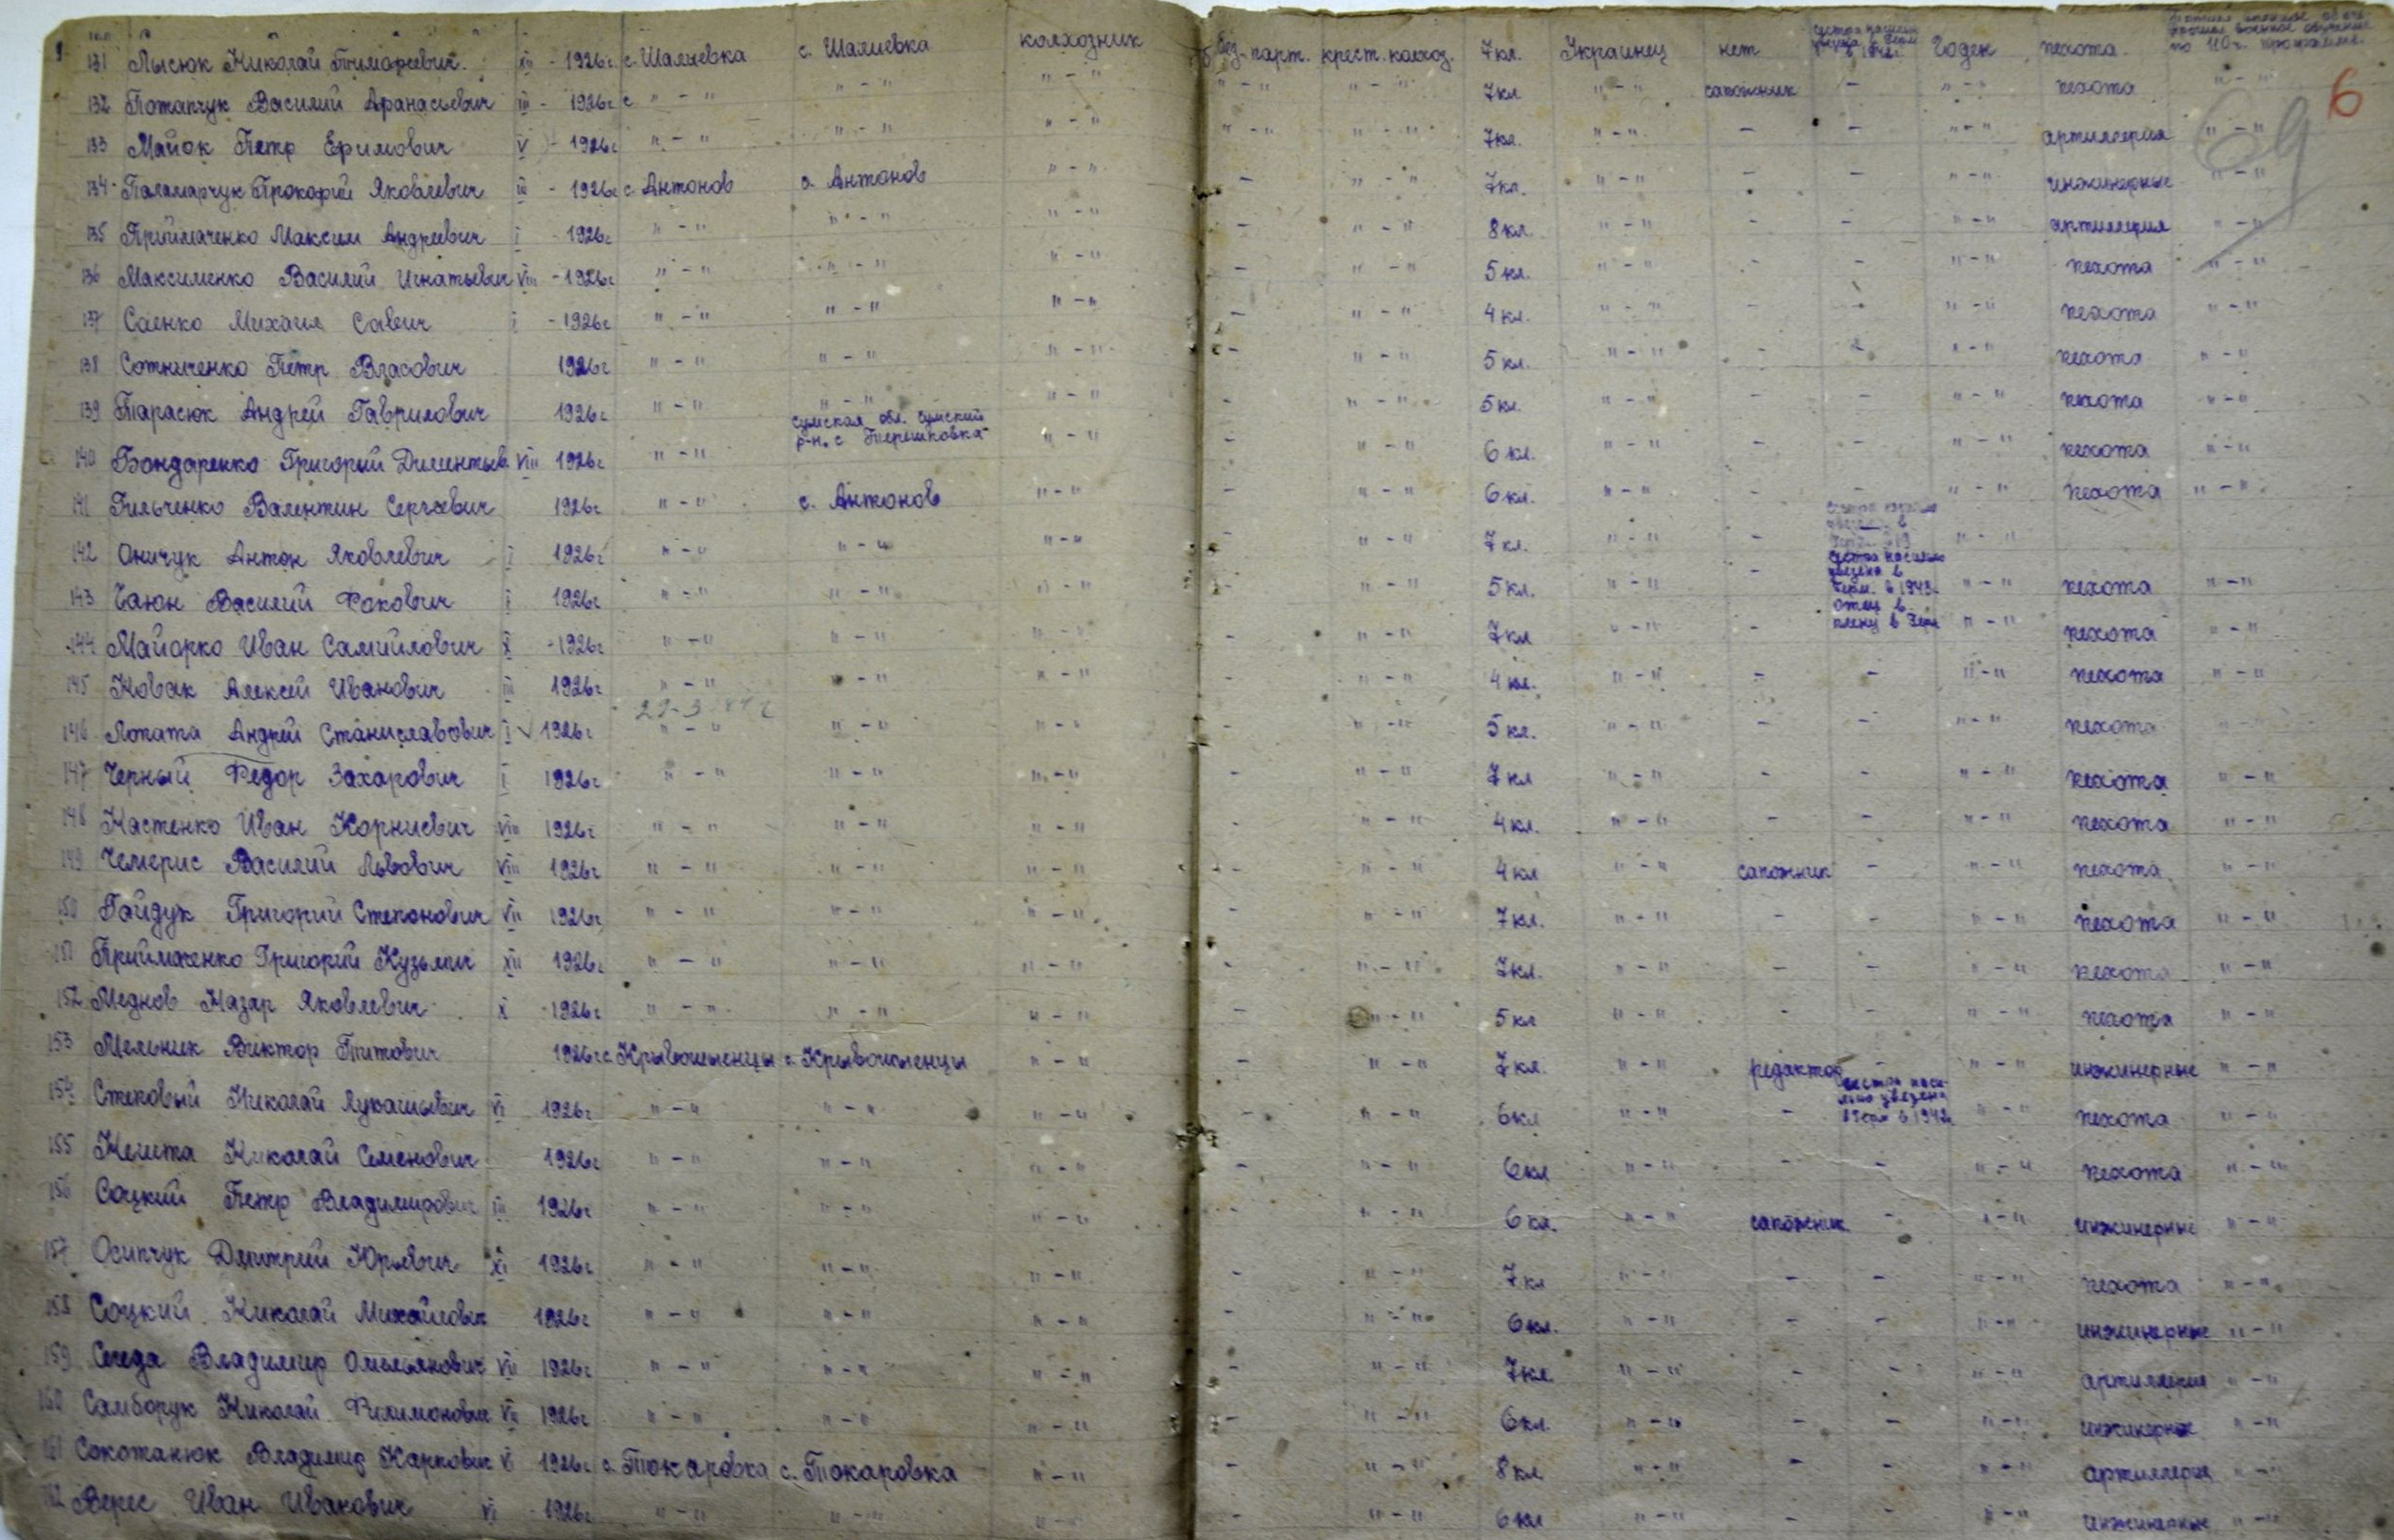 131 Лысюк Николай Тимофеевич XII - 1926г. с. Шалиевка с. Шалиевка колхозник без-парт. крест. колхоз. 7кл. Украинец нет годен пехота
132 Потапчук Василий Афанасьевич III - 1926г. с " - " " - " " - " " - " " - " 7кл " - " сапожник - " - " пехота " - "
6
133 Майок Петр Ефимович V - 1926г " - " " - " " - " " - " " - " 7кл. " - " - - " - " артиллерия " - "
69
134 Паламарчук Прокофий Яковлевич III - 1926г с. Антонов с. Антонов " - " - " - " 7кл. " - " - - " - " инженерные " - "
135 Приймаченко Максим Андреевич I - 1926г " - " " - " " - " - " - " 8кл. " - " - - " - " артиллерия " - "
136 Максименко Василий Игнатьевич VIII - 1926г " - " " - " " - " - " - " 5кл. " - " - - " - " пехота " - "
137 Саенко Михаил Савич I - 1926г " - " " - " " - " - " - " 4кл. " - " - - " - " пехота " - "
138 Сотниченко Петр Власович 1926г " - " " - " " - " - " - " 5кл. " - " - - " - " пехота " - "
139 Тарасюк Андрей Гаврилович 1926г " - " " - " " - " - " - " 5кл. " - " - - " - " пехота " - "
Сумская обл. Сумский
р-н. с Терешковка
140 Бондаренко Григорий Дементьев. VIII 1926г " - " " - " - " - " 6кл. " - " - - " - " пехота " - "
141 Гильченко Валентин Сергеевич 1926г " - " с. Антонов " - " - " - " 6кл. " - " - - " - " пехота " - "
142 Оничук Антон Яковлевич I 1926г " - " " - " " - " - " - " 7кл. " - " - " - "
143 Чаюн Василий Фокович I 1926г " - " " - " " - " - " - " 5кл. " - " - " - " пехота " - "
сестра насильно
увезена в
Герм. в 1943г
отец в
плену в Герм
144 Майорко Иван Самийлович X - 1926г " - " " - " " - " - " - " 7кл " - " - " - " пехота " - "
145 Новак Алексей Иванович III 1926г " - " " - " " - " - " - " 4кл. " - " - - " - " пехота " - "
146 Лопата Андрей Станиславович I 1926г " - " " - " " - " - " - " 5кл. " - " - - " - " пехота
147 Черный Федор Захарович I 1926г " - " " - " " - " - " - " 7кл " - " - - " - " пехота " - "
148 Настенко Иван Корниевич VIII 1926г " - " " - " " - " - " - " 4кл. " - " - - " - " пехота " - "
149 Чемерис Василий Львович VIII 1926г " - " " - " " - " - " - " 4кл " - " сапожник - " - " пехота " - "
150 Гайдук Григорий Степанович VII 1926г " - " " - " " - " - " - " 7кл. " - " - - " - " пехота " - "
151 Григорий Кузьмич XII 1926г " - " " - " " - " - " - " 7кл. " - " - - " - " пехота " - "
152 Меднов Назар Яковлевич X 1926г " - " " - " " - " - " - " 5кл " - " - - " - " пехота " - "
153 Мельник Виктор Титович 1926г с. Крывошыенцы с. Крывошыенцы " - " - " - " 7кл. " - " редактор - " - " инженерные " - "
154 Степовый Николай Лукашевич VI 1926г " - " " - " " - " - " - " 6кл " - " - " - " пехота " - "
155 Николай Семенович 1926г " - " " - " " - " - " - " 6кл " - " - - " - " пехота " - "
156 Соцкий Петр Владимирович III 1926г " - " " - " " - " - " - " 6кл. " - " сапожник - " - " инженерные " - "
157 Осипчук Дмитрий Юрьевич XI 1926г " - " " - " " - " - " - " 7кл " - " - - " - " пехота " - "
158 Соцкий Николай Михайлович 1926г " - " " - " " - " - " - " 6кл. " - " - - " - " инженерные " - "
159 Середа Владимир Омельянович VII 1926г " - " " - " " - " - " - " 7кл. " - " - - " - " артиллерия " - "
160 Самборук Николай Филимонович VII 1926г " - " " - " " - " - " - " 6кл. " - " - - " - " инженерные " - "
161 Сокотанюк Владимир Карпович V 1926г с. Токаровка с. Токаровка " - " - " - " 8кл " - " - - " - " артиллерия " - "
162 Верес Иван Иванович VI 1926г " - " " - " " - " - " - " 6кл " - " - - " - " инженерные " - "